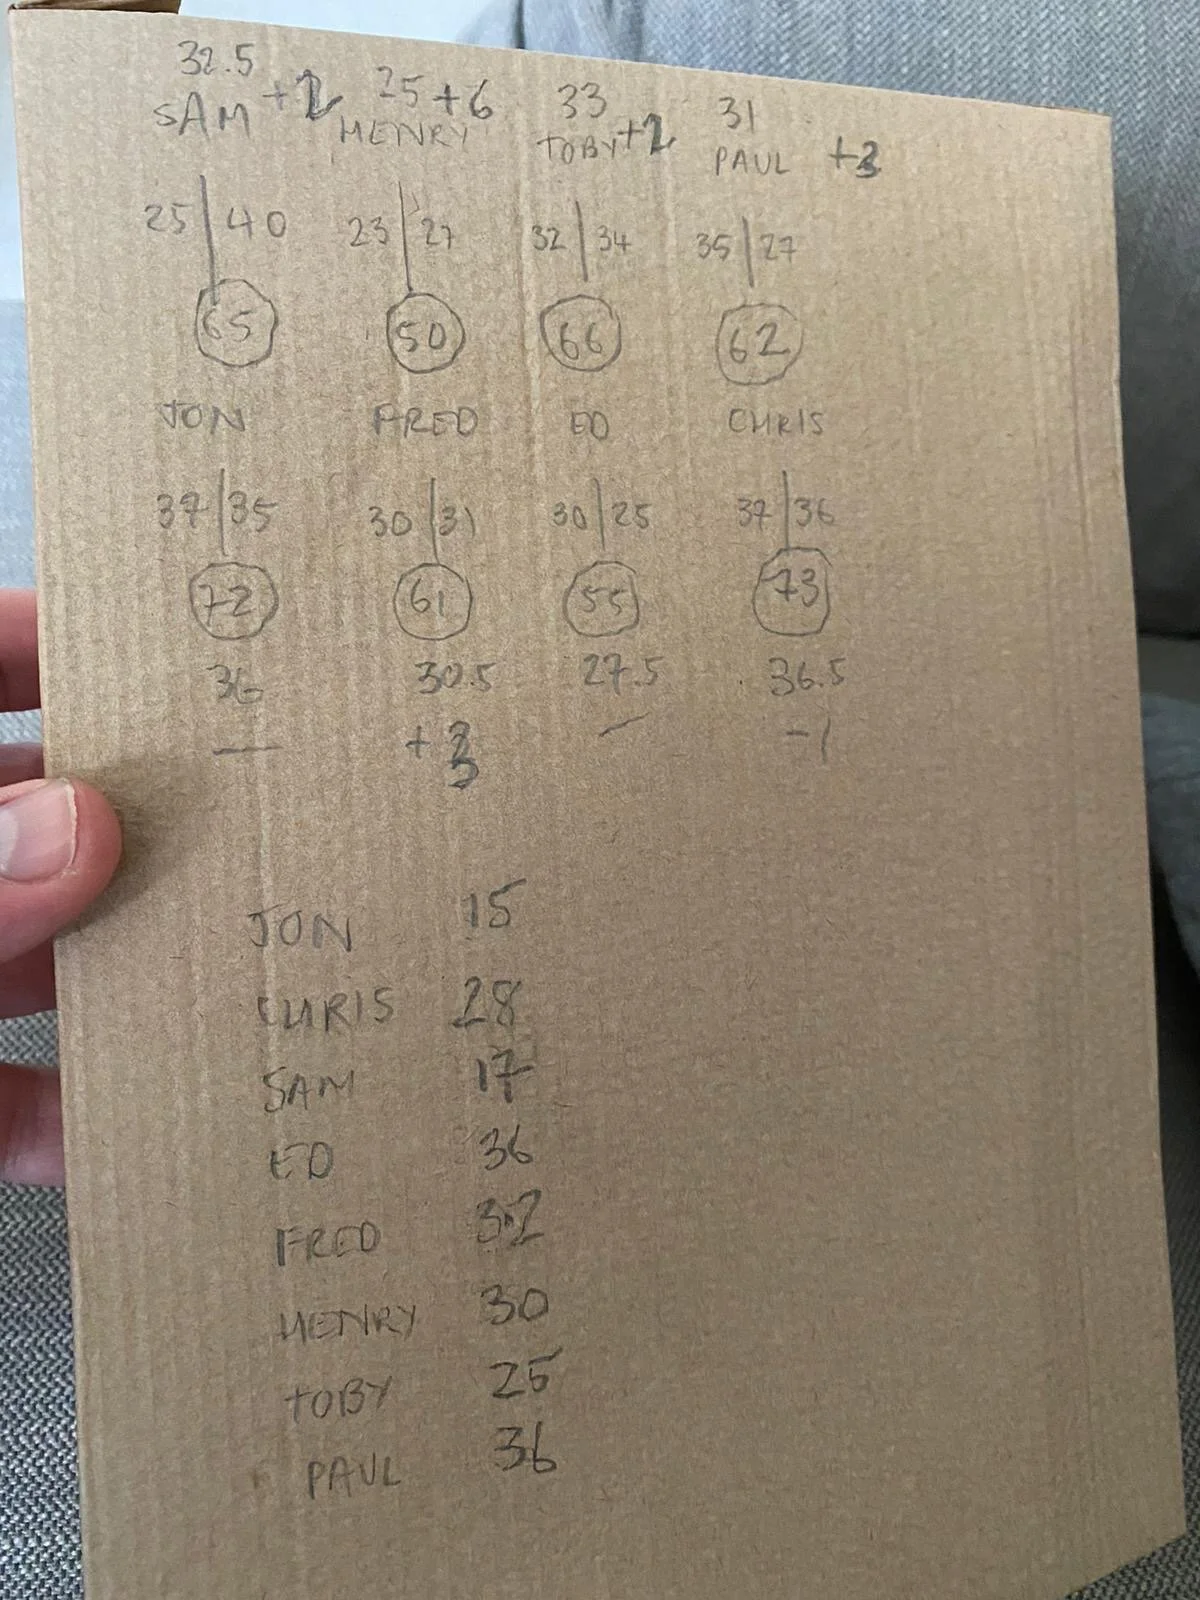 32.5 25 +6 33 31
SAM +2 HENRY TOBY +2 PAUL +3
25 | 40 23 | 27 32 | 34 35 | 27
65 50 66 62
JON FRED ED CHRIS
37 | 35 30 | 31 30 | 25 37 | 36
72 61 55 73
36 30.5 27.5 36.5
— + 3 — -1
JON 15
CHRIS 28
SAM 17
ED 36
FRED 32
HENRY 30
TOBY 25
PAUL 36